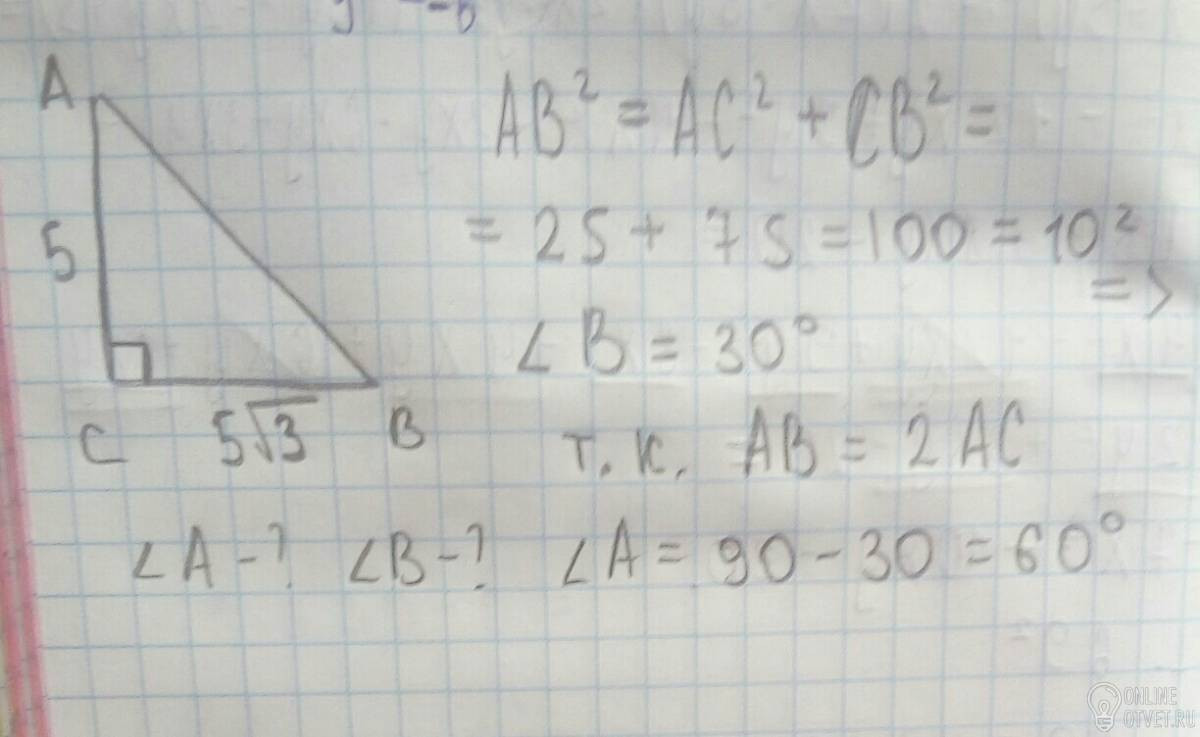 A
5
C 5√3 B
∠A-? ∠B-?
AB² = AC² + CB² =
= 25 + 75 = 100 = 10²
=>
∠B = 30°
т.к. AB = 2AC
∠A = 90 - 30 = 60°
ONLINE
OTVET.RU